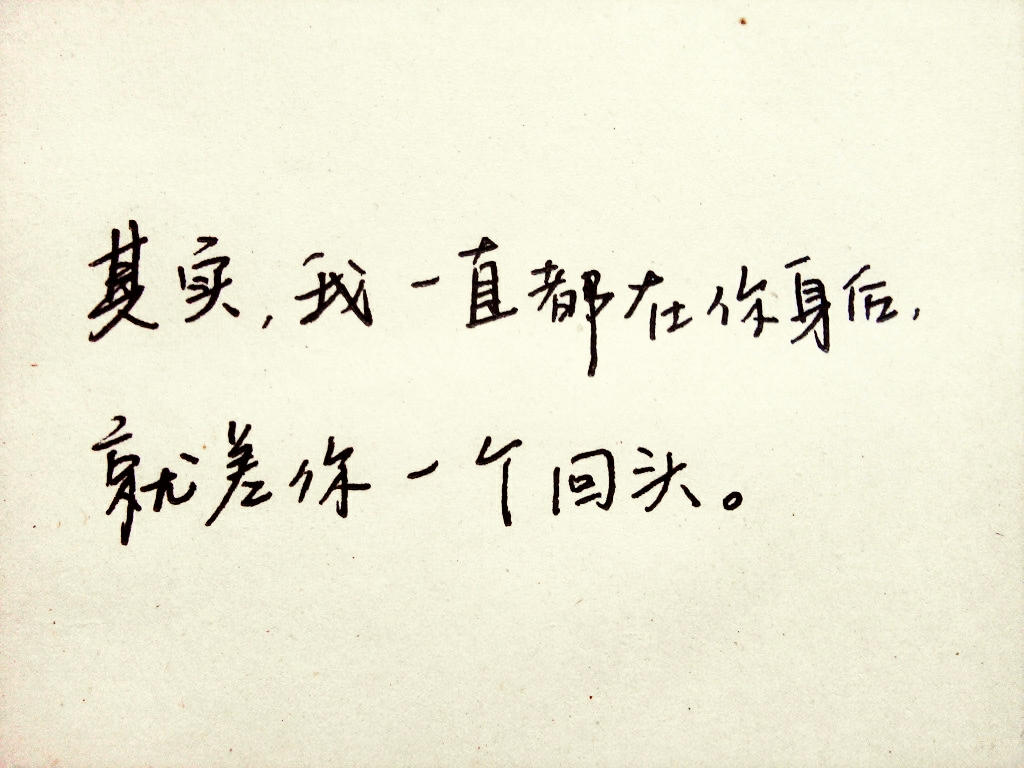 其实，我一直都在你身后，
就差你一个回头。